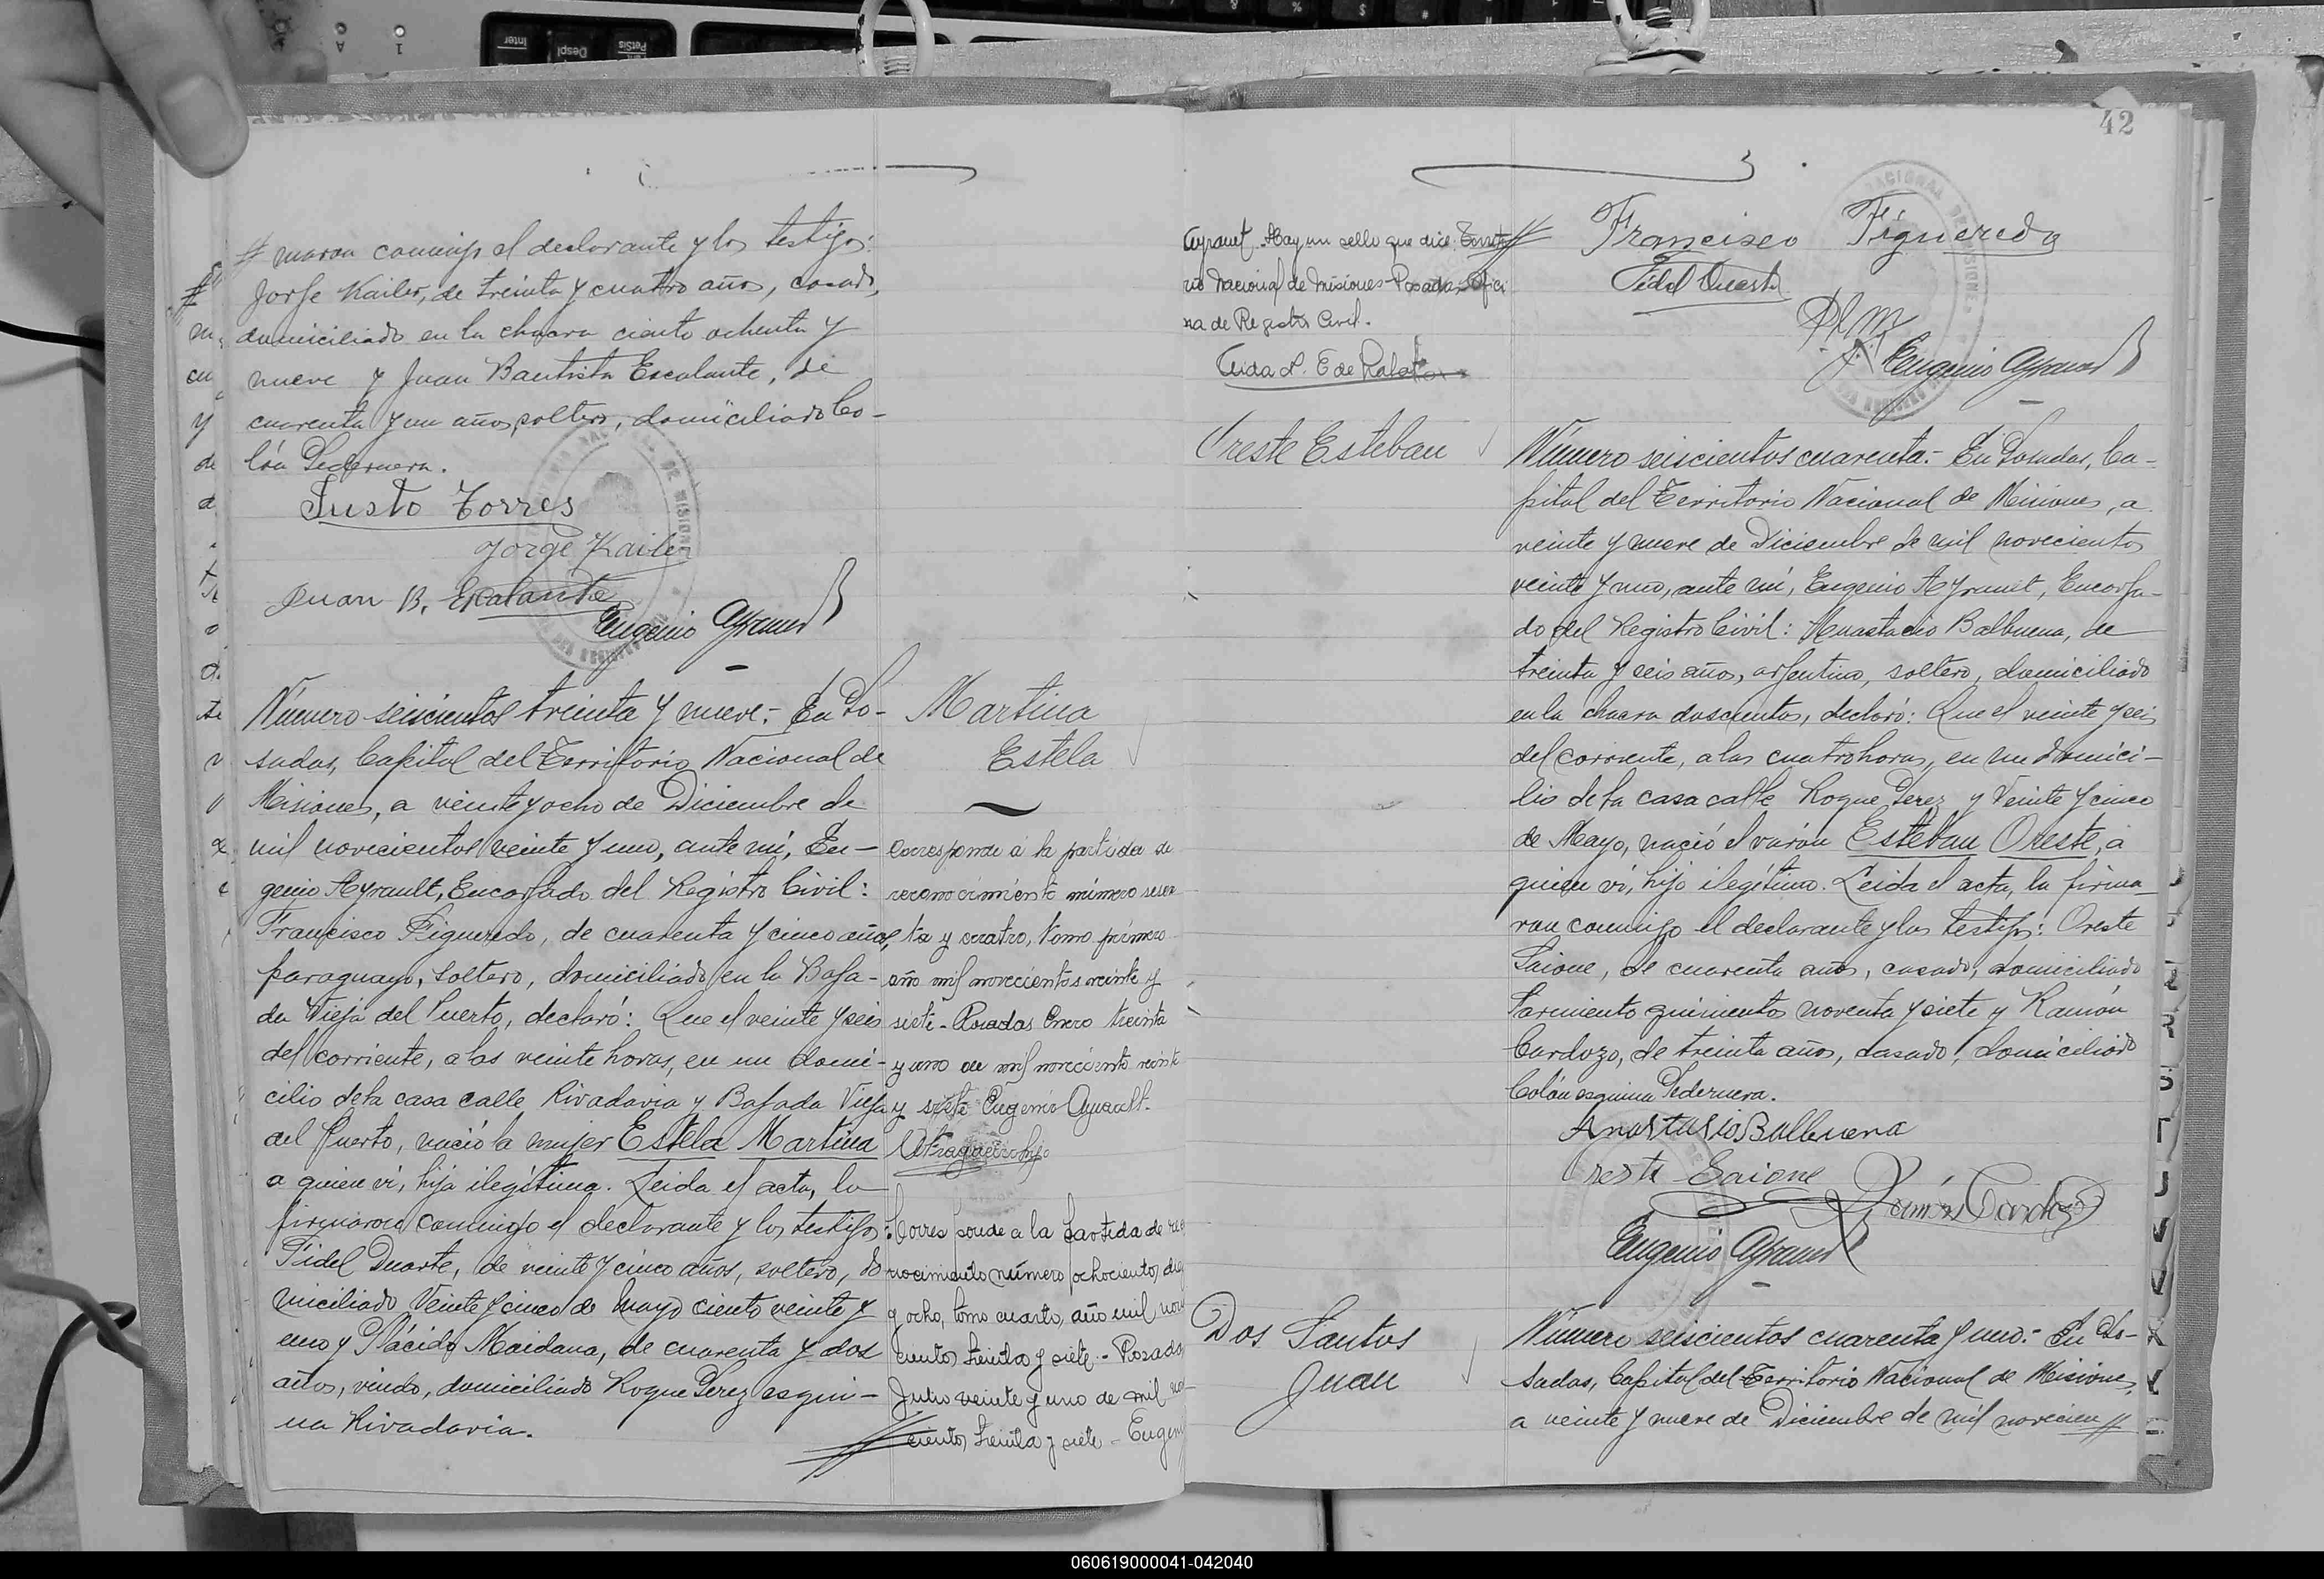 # maron conmigo el declarante y los testigos:
Jorge Kailer, de treinta y cuatro años, casado,
domiciliado en la chacra ciento ochenta y
nueve y Juan Bautista Escalante, de
cuarenta y un años, soltero, domiciliado Co-
lón Pedernera.
Justo Torres
Jorge Kailer
Juan B. Escalante
Eugenio Ayrault
Número seiscientos treinta y nueve.- En Po-
sadas, Capital del Territorio Nacional de
Misiones, a veinte y ocho de Diciembre de
mil novecientos veinte y uno, ante mí, Eu-
genio Ayrault, Encargado del Registro Civil:
Francisco Figueredo, de cuarenta y cinco años,
paraguayo, soltero, domiciliado en la Baja-
da Vieja del Puerto, declaró: Que el veinte y seis
del corriente, a las veinte horas, en un domi-
cilio de la casa calle Rivadavia y Bajada Vieja
del Puerto, nació la mujer Estela Martina
a quien vi, hija ilegítima. Leida el acta, la
firmaron conmigo el declarante y los testigos:
Fidel Duarte, de veinte y cinco años, soltero, do
miciliado Veinte y cinco de Mayo ciento veinte y
uno y Plácido Maidana, de cuarenta y dos
años, viudo, domiciliado Roque Pérez esqui-
na Rivadavia.
Martina
Estela
Corresponde á la partida de
reconocimiento número sesen
ta y cuatro, tomo primero
año mil novecientos veinte y
siete - Posadas Enero treinta
y uno de mil novecientos veinte
y siete Eugenio Ayrault.
Corresponde a la partida de reco
nocimiento número ochocientos diez
y ocho, tomo cuarto, año mil nove
cientos treinta y siete - Posadas
Julio veinte y uno de mil no-
cientos treinta y siete - Eugenio
42
Ayrault. Hay un sello que dice: Territo
rio Nacional de Misiones - Posadas, Ofici
na de Registro Civil.
Francisco Figueredo
Fidel Duarte
Eugenio Ayrault
Oreste Esteban
Número seiscientos cuarenta.- En Posadas, Ca-
pital del Territorio Nacional de Misiones, a
veinte y nueve de Diciembre de mil novecientos
veinte y uno, ante mí, Eugenio Ayrault, Encarga-
do del Registro Civil: Anastacio Balbuena, de
treinta y seis años, argentino, soltero, domiciliado
en la chacra doscientos, declaró: Que el veinte y seis
del corriente, a las cuatro horas, en un domici-
lio de la casa calle Roque Perez y Veinte y cinco
de Mayo, nació el varón Esteban Oreste, a
quien vi, hijo ilegítimo. Leida el acta, la firma-
ron conmigo el declarante y los testigos: Oreste
Saione, de cuarenta años, casado, domiciliado
Sarmiento quinientos noventa y siete y Ramón
Cardozo, de treinta años, casado, domiciliado
Colón esquina Pedernera.
Anastasio Balbuena
Oreste Saione
Ramón Cardozo
Eugenio Ayrault
Dos Santos
Juan
Número seiscientos cuarenta y uno.- En Po-
sadas, Capital del Territorio Nacional de Misiones,
a veinte y nueve de Diciembre de mil novecien //
060619000041-042040